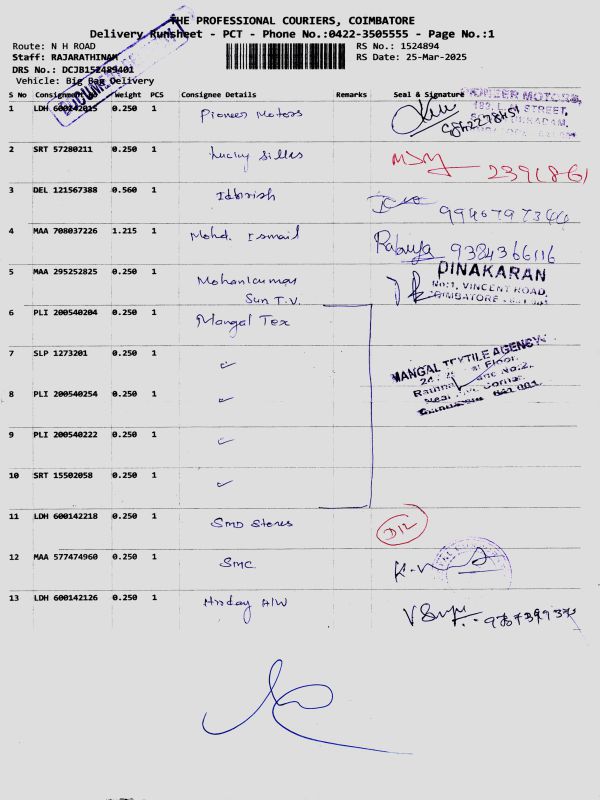 THE PROFESSIONAL COURIERS, COIMBATORE
Delivery Runsheet - PCT - Phone No.:0422-3505555 - Page No.:1
Route: N H ROAD
RS No.: 1524894
Staff: RAJARATHINAM
RS Date: 25-Mar-2025
DRS No.: DCJB152489401
Vehicle: Big Bag Delivery
S No Consignment No Weight PCS Consignee Details Remarks Seal & Signature
PIONEER MOTORS
1 LDH 600242015 0.250 1 Pioneer Motors
STREET,
2 SRT 57280211 0.250 1 Lucky Silks MSM
3 DEL 121567388 0.560 1 Idbirish
4 MAA 708037226 1.215 1 Mohd. Ismail Rabuya 9384366116
5 MAA 295252825 0.250 1 Mohankumar
Sun T.V.
DINAKARAN
No:1, VINCENT ROAD,
COIMBATORE - 641 001
6 PLI 200540204 0.250 1 Mangal Tex
7 SLP 1273201 0.250 1 ✓
MANGAL TEXTILE AGENCY
Floor,
8 PLI 200540254 0.250 1 ✓
Corner,
641 001.
9 PLI 200540222 0.250 1 ✓
10 SRT 15502058 0.250 1 ✓
11 LDH 600142218 0.250 1 SMD Stores D12
12 MAA 577474960 0.250 1 SMC
13 LDH 600142126 0.250 1 Hriday H/W